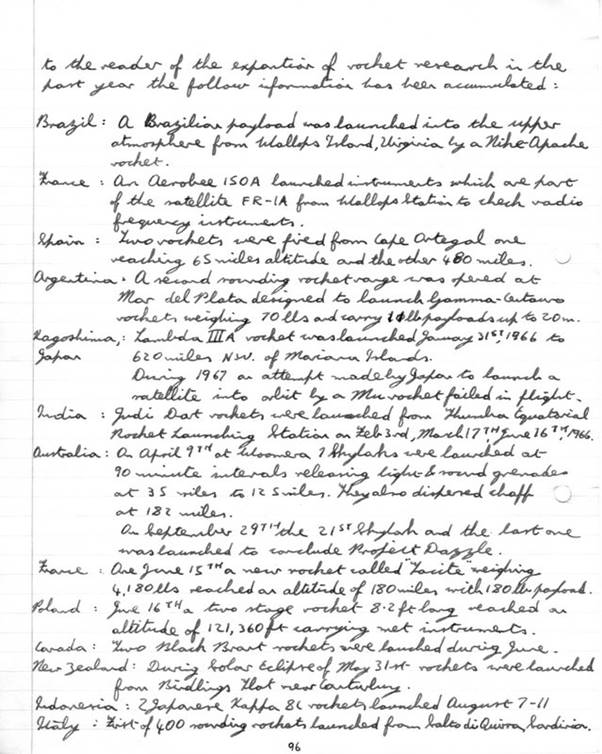 to the reader of the expantion of rocket research in the
past year the follow information has been accumulated:
Brazil: A Brazilian payload was launched into the upper
atmosphere from Wallops Island, Virginia by a Nike-Apache
rocket.
France: An Aerobee 150A launched instruments which are part
of the satellite FR-1A from Wallops Station to check radio
frequency instruments.
Spain: Two rockets were fired from Cape Ortegal one
reaching 65 miles altitude and the other 480 miles.
Argentina. A second sounding rocket range was opened at
Mar del Plata designed to launch Gamma-Centauro
rockets weighing 70 lbs and carry 10 lb payloads up to 20m.
Kagoshima,: Lambda III A rocket was launched January 31ST, 1966 to
Japan 620 miles NSW. of Mariana Islands.
During 1967 an attempt made by Japan to launch a
satellite into orbit by a Mu rocket failed in flight.
India: Judi Dart rockets were launched from Thumba Equatorial
Rocket Launching Station on Feb 3rd, March 17TH, June 16TH, 1966.
Australia: On April 9TH at Woomera 7 Skylarks were launched at
90 minute intervals releasing light & sound grenades
at 35 miles to 125 miles. They also dispersed chaff
at 182 miles.
On September 29TH the 21ST Skylark and the last one
was launched to conclude Project Dazzle.
France: One June 15TH a new rocket called "Tacite" weighing
4,180 lbs reached an altitude of 180 miles with 180 lb payload.
Poland: June 16TH a two stage rocket 8.2 ft long reached an
altitude of 121,360 ft carrying met instruments.
Canada: Two Black Brant rockets were lauched during June.
New Zealand: During Solar Eclipse of May 31st rockets were launched
from Birdlings Flat near Canterbury.
Indonesia: 2 Japanese Kappa 8L rockets launched August 7-11
Italy: First of 400 sounding rockets launched from Salto di Quirra, Sardinia.
96